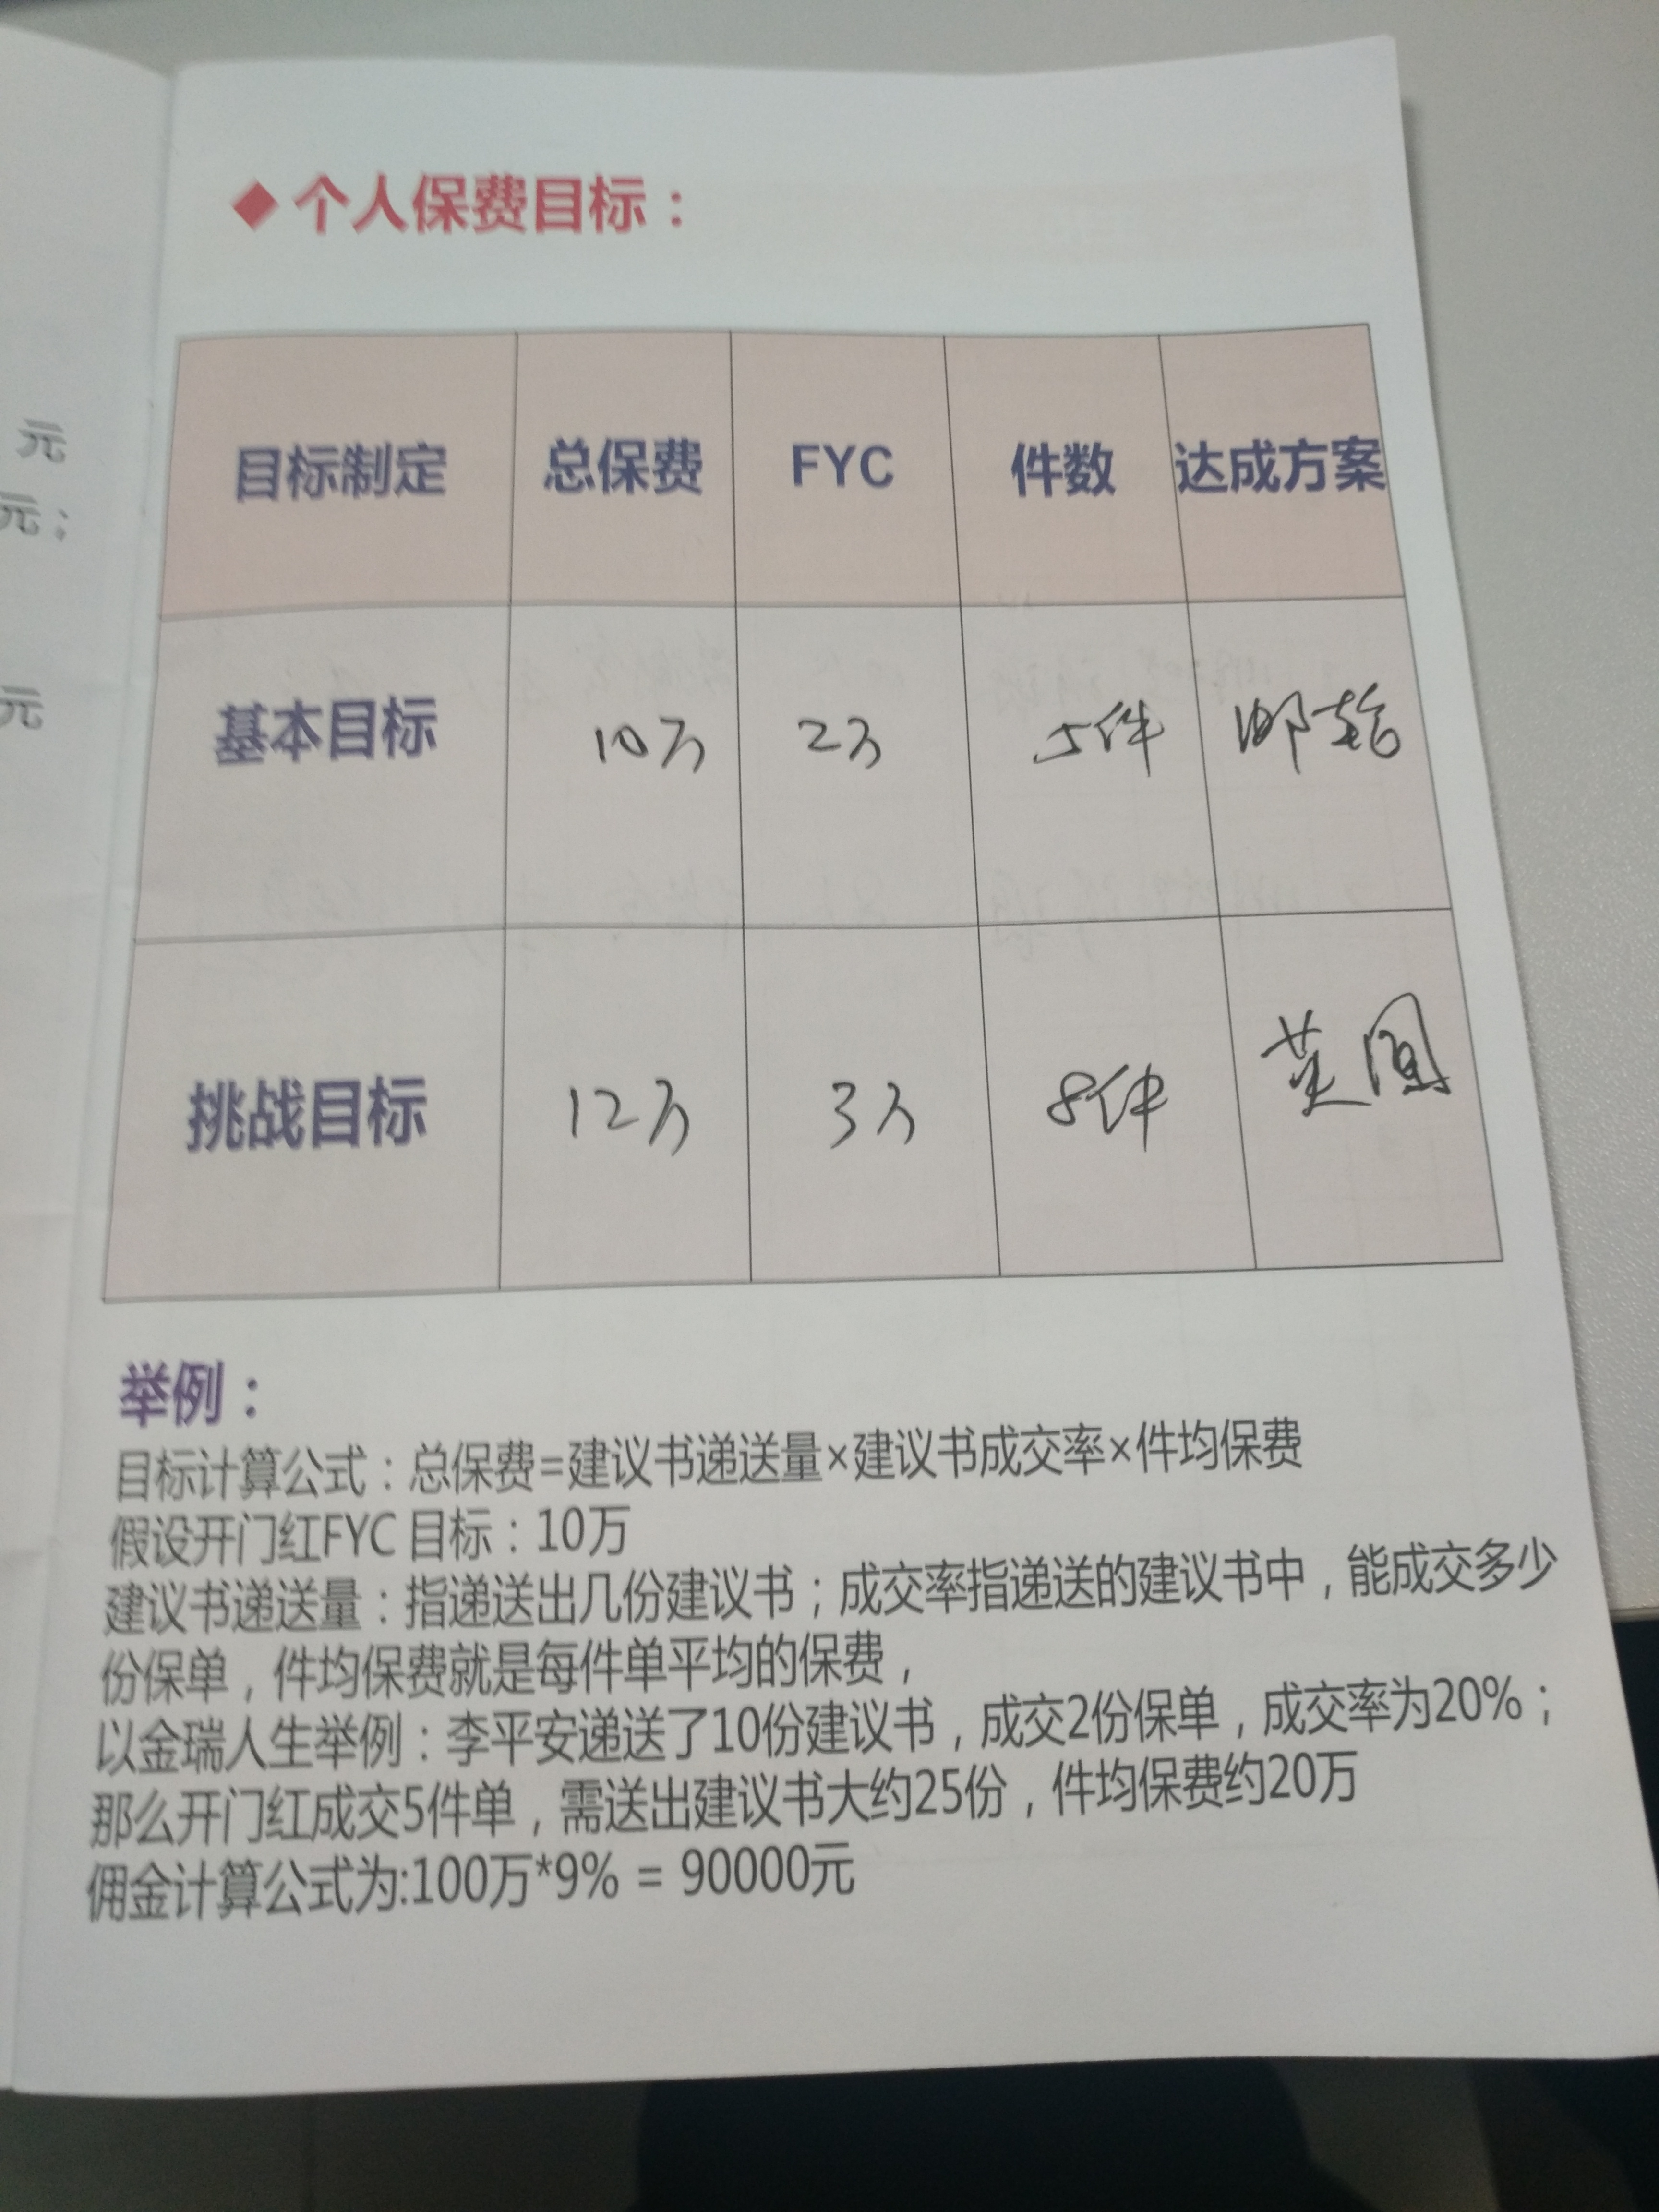 元
元；
元
◆ 个人保费目标：
目标制定 总保费 FYC 件数 达成方案
基本目标 10万 2万 5件 邮轮
挑战目标 12万 3万 8件 英国
举例：
目标计算公式：总保费=建议书递送量×建议书成交率×件均保费
假设开门红FYC 目标：10万
建议书递送量：指递送出几份建议书；成交率指递送的建议书中，能成交多少
份保单，件均保费就是每件单平均的保费，
以金瑞人生举例：李平安递送了10份建议书，成交2份保单，成交率为20%；
那么开门红成交5件单，需送出建议书大约25份，件均保费约20万
佣金计算公式为:100万*9% = 90000元